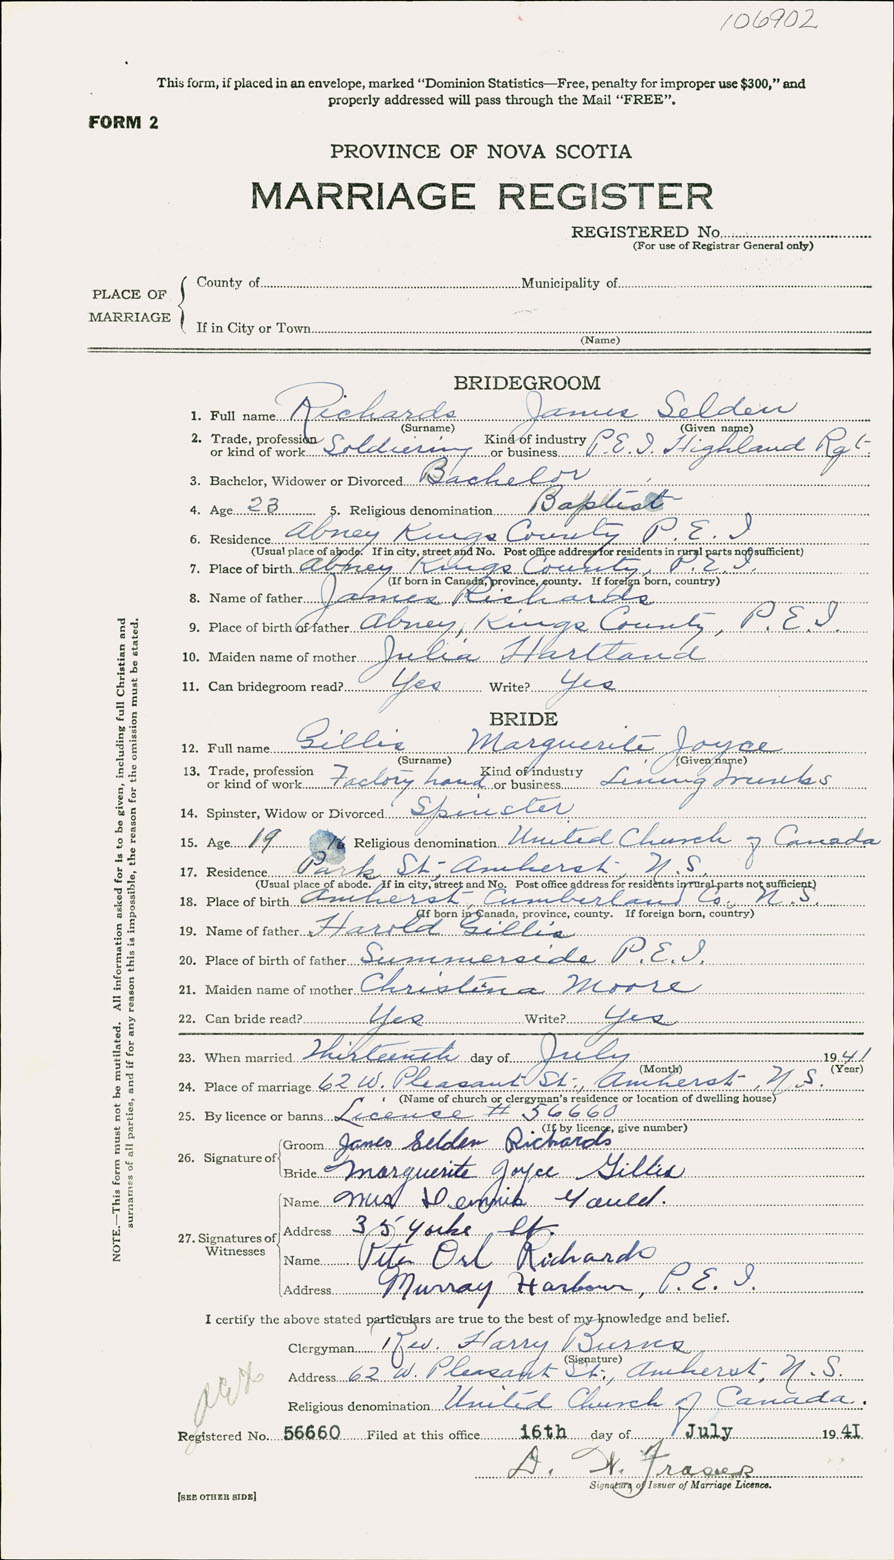 106902
This form, if placed in an envelope, marked "Dominion Statistics—Free, penalty for improper use $300," and
properly addressed will pass through the Mail "FREE".
FORM 2
PROVINCE OF NOVA SCOTIA
MARRIAGE REGISTER
REGISTERED No.
(For use of Registrar General only)
PLACE OF MARRIAGE
County of Municipality of
If in City or Town
(Name)
BRIDEGROOM
1. Full name Richards James Selden
(Surname) (Given name)
2. Trade, profession or kind of work Soldiering Kind of industry or business P.E.I. Highland Rgt.
3. Bachelor, Widower or Divorced Bachelor
4. Age 23 5. Religious denomination Baptist
6. Residence Abney Kings County P.E.I
(Usual place of abode. If in city, street and No. Post office address for residents in rural parts not sufficient)
7. Place of birth Abney Kings County, P.E.I.
(If born in Canada, province, county. If foreign born, country)
8. Name of father James Richards
9. Place of birth of father Abney, Kings County, P.E.I.
10. Maiden name of mother Julia Hartland
11. Can bridegroom read? Yes Write? Yes
BRIDE
12. Full name Gillis Marguerite Joyce
(Surname) (Given name)
13. Trade, profession or kind of work Factory hand Kind of industry or business Lining Trunks
14. Spinster, Widow or Divorced Spinster
15. Age 19 16 Religious denomination United Church of Canada
17. Residence Park St., Amherst, N.S.
(Usual place of abode. If in city, street and No. Post office address for residents in rural parts not sufficient)
18. Place of birth Amherst, Cumberland Co., N.S.
(If born in Canada, province, county. If foreign born, country)
19. Name of father Harold Gillis
20. Place of birth of father Summerside P.E.I.
21. Maiden name of mother Christina Moore
22. Can bride read? Yes Write? Yes
23. When married Thirteenth day of July 1941
(Month) (Year)
24. Place of marriage 62 W. Pleasant St., Amherst, N.S.
(Name of church or clergyman's residence or location of dwelling house)
25. By licence or banns License # 56660
(If by licence, give number)
26. Signature of Groom James Selden Richards
Bride Marguerite Joyce Gillis
27. Signatures of Witnesses
Name Mrs Dennis Gauld.
Address 35 Yorke St.
Name Orl Richards
Address Murray Harbour, P.E.I.
I certify the above stated particulars are true to the best of my knowledge and belief.
Clergyman Rev. Harry Burns
(Signature)
Address 62 W. Pleasant St., Amherst, N.S.
Religious denomination United Church of Canada.
Registered No. 56660 Filed at this office 16th day of July 1941
D. W. Fraser
Signature of Issuer of Marriage Licence.
[SEE OTHER SIDE]
NOTE.—This form must not be mutilated. All information asked for is to be given, including full Christian and
surnames of all parties, and if for any reason this is impossible, the reason for the omission must be stated.